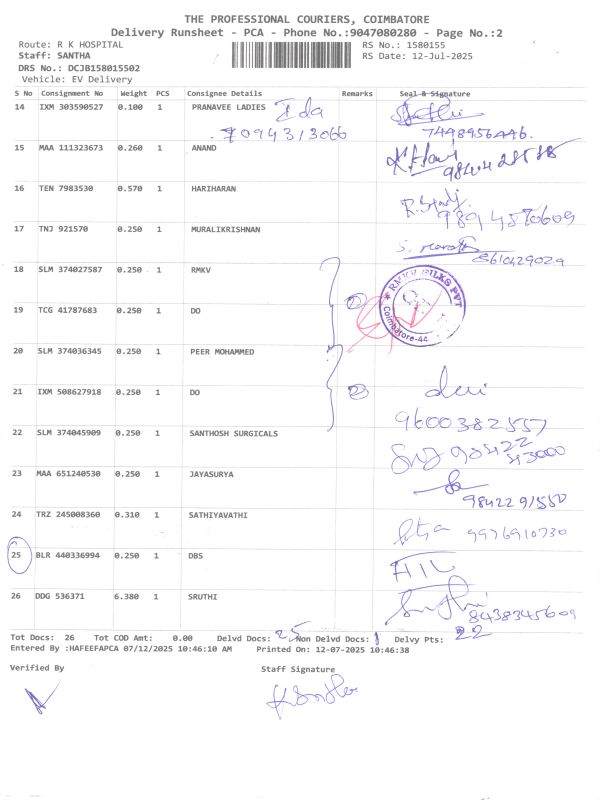 THE PROFESSIONAL COURIERS, COIMBATORE
Delivery Runsheet - PCA - Phone No.:9047080280 - Page No.:2
Route: R K HOSPITAL RS No.: 1580155
Staff: SANTHA RS Date: 12-Jul-2025
DRS No.: DCJB158015502
Vehicle: EV Delivery
S No Consignment No Weight PCS Consignee Details Remarks Seal & Signature
14 IXM 303590527 0.100 1 PRANAVEE LADIES Ida
7094313066 7448956446.
15 MAA 111323673 0.260 1 ANAND
16 TEN 7983530 0.570 1 HARIHARAN
9894570609
17 TNJ 921570 0.250 1 MURALIKRISHNAN
8610429029
18 SLM 374027587 0.250 1 RMKV
RMKV SILKS PVT
Coimbatore-44
19 TCG 41787683 0.250 1 DO
20 SLM 374036345 0.250 1 PEER MOHAMMED
21 IXM 508627918 0.250 1 DO 2 devi
9600382557
22 SLM 374045909 0.250 1 SANTHOSH SURGICALS
98422
43000
23 MAA 651240530 0.250 1 JAYASURYA
98422 91550
24 TRZ 245008360 0.310 1 SATHIYAVATHI 9976910730
25 BLR 440336994 0.250 1 DBS HIL
26 DDG 536371 6.380 1 SRUTHI
8438345609
Tot Docs: 26 Tot COD Amt: 0.00 Delvd Docs: 25 Non Delvd Docs: 1 Delvy Pts: 22
Entered By :HAFEEFAPCA 07/12/2025 10:46:10 AM Printed On: 12-07-2025 10:46:38
Verified By Staff Signature